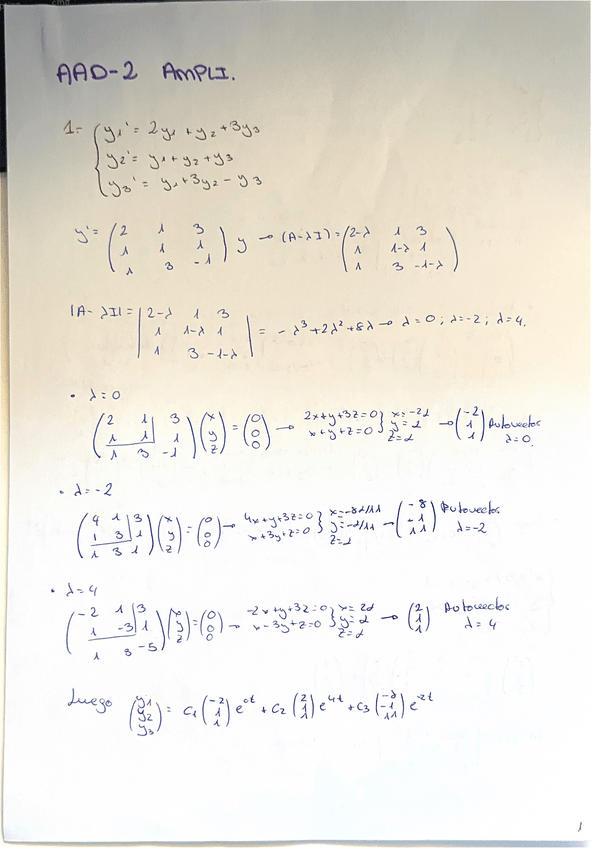 AAD-2 AMPLI.
1.- { y1' = 2y1 + y2 + 3y3
y2' = y1 + y2 + y3
y3' = y1 + 3y2 - y3
y' = (2 1 3; 1 1 1; 1 3 -1) y → (A-λI) = (2-λ 1 3; 1 1-λ 1; 1 3 -1-λ)
|A-λI| = |2-λ 1 3; 1 1-λ 1; 1 3 -1-λ| = -λ³+2λ²+8λ → λ=0; λ=-2; λ=4.
• λ=0
(2 1 3; 1 1 1; 1 3 -1) (x; y; z) = (0; 0; 0) → 2x+y+3z=0; x+y+z=0 } x=-2α; y=α; z=α → (-2; 1; 1) Autovector λ=0.
• λ=-2
(4 1 3; 1 3 1; 1 3 1) (x; y; z) = (0; 0; 0) → 4x+y+3z=0; x+3y+z=0 } x=-8α/11; y=-α/11; z=α → (-8; -1; 11) Autovector λ=-2
• λ=4
(-2 1 3; 1 -3 1; 1 3 -5) (x; y; z) = (0; 0; 0) → -2x+y+3z=0; x-3y+z=0 } x=2α; y=α; z=α → (2; 1; 1) Autovector λ=4
Luego (y1; y2; y3) = C1 (-2; 1; 1) e^0t + C2 (2; 1; 1) e^4t + C3 (-8; -1; 11) e^-2t
1